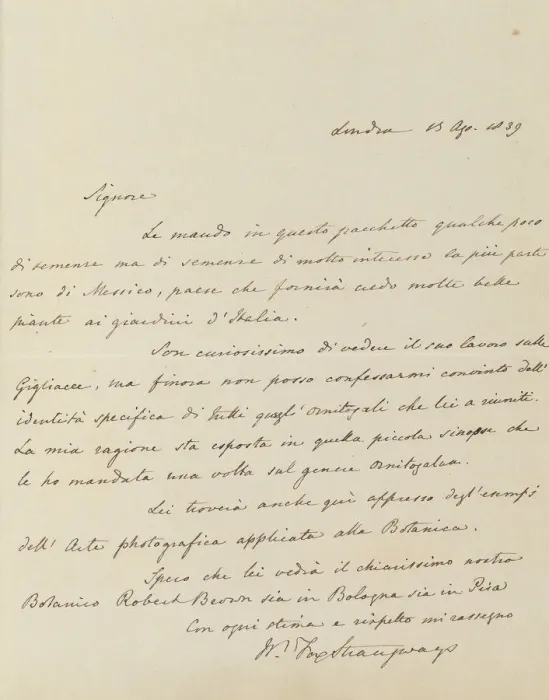 Londra 15 Ago. 1839
Signore
Le mando in questo pacchetto qualche poco
di semenze ma di semenze di molto interesse la più parte
sono di Messico, paese che fornirà credo molte belle
piante ai giardini d'Italia.
Son curiosissimo di vedere il suo lavoro sulle
Gigliacee, ma finora non posso confessarmi convinto dell'
identità specifica di tutti quegl' ornitogali che lei a riuniti.
La mia ragione sta esposta in quella piccola sinopse che
le ho mandata una volta sul genere Ornitogalum.
Lei troverà anche quì appresso degl'esempj
dell' Arte photografica applicata alla Botanica.
Spero che lei vedrà il chiarissimo nostro
Botanico Robert Brown sia in Bologna sia in Pisa
Con ogni stima e rispetto mi rassegno
Wm. Fox Strangways